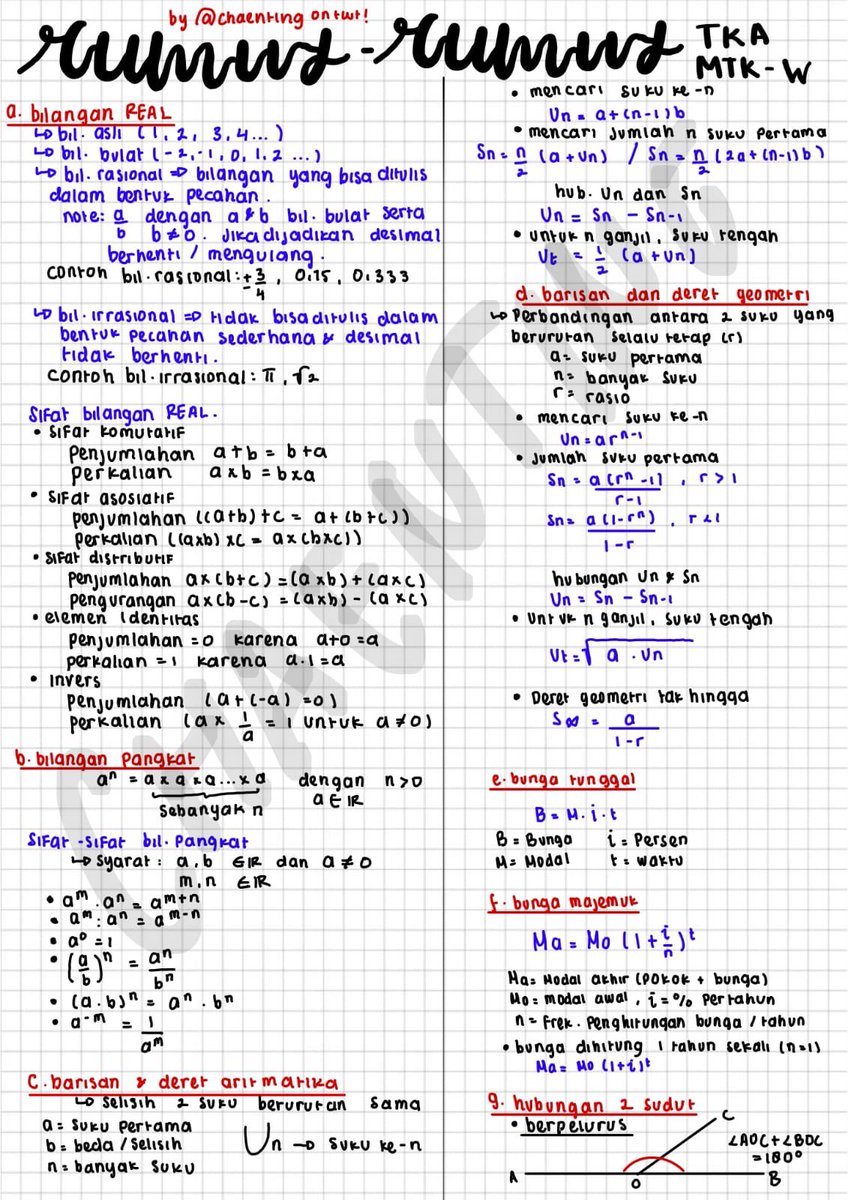 by @chaenting on twt!
rumus-rumus TKA
MTK-W
a. bilangan REAL
↳ bil. asli (1, 2, 3, 4...)
↳ bil. bulat (-2, -1, 0, 1, 2 ...)
↳ bil. rasional ⇒ bilangan yang bisa ditulis
dalam bentuk pecahan.
note: a/b dengan a & b bil. bulat serta
b ≠ 0. Jika dijadikan desimal
berhenti / mengulang.
contoh bil. rasional: ± 3/4, 0.15, 0.333
↳ bil. irrasional ⇒ tidak bisa ditulis dalam
bentuk pecahan sederhana & desimal
tidak berhenti.
contoh bil. irrasional: π, √2
Sifat bilangan REAL.
• sifat komutatif
penjumlahan a+b = b+a
perkalian a×b = b×a
• sifat asosiatif
penjumlahan ((a+b)+c = a+(b+c))
perkalian ((axb)xc = ax(bxc))
• sifat distributif
penjumlahan ax(b+c) = (axb)+(axc)
pengurangan ax(b-c) = (axb)-(axc)
• elemen identitas
penjumlahan = 0 karena a+0 = a
perkalian = 1 karena a.1 = a
• invers
penjumlahan (a+(-a) = 0)
perkalian (a x 1/a = 1 untuk a ≠ 0)
b. bilangan pangkat
aⁿ = a x a x a ... x a dengan n > 0
sebanyak n a ∈ IR
Sifat-sifat bil. pangkat
↳ syarat: a, b ∈ IR dan a ≠ 0
m, n ∈ IR
• aᵐ . aⁿ = aᵐ⁺ⁿ
• aᵐ : aⁿ = aᵐ⁻ⁿ
• a⁰ = 1
• (a/b)ⁿ = aⁿ/bⁿ
• (a.b)ⁿ = aⁿ . bⁿ
• a⁻ᵐ = 1/aᵐ
c. barisan & deret aritmatika
↳ selisih 2 suku berurutan sama
a = suku pertama
b = beda / selisih
n = banyak suku
Un → suku ke-n
• mencari suku ke-n
Un = a+(n-1)b
• mencari jumlah n suku pertama
Sn = n/2 (a+Un) / Sn = n/2 (2a+(n-1)b)
hub. Un dan Sn
Un = Sn - Sn-1
• untuk n ganjil, suku tengah
Ut = 1/2 (a+Un]
d. barisan dan deret geometri
↳ Perbandingan antara 2 suku yang
berurutan selalu tetap (r)
a = suku pertama
n = banyak suku
r = rasio
• mencari suku ke-n
Un = arⁿ⁻¹
• Jumlah suku pertama
Sn = a(rⁿ-1)/r-1, r > 1
Sn = a(1-rⁿ)/1-r, r < 1
hubungan Un & Sn
Un = Sn - Sn-1
• Untuk n ganjil, suku tengah
Ut = √a . Un
• Deret geometri tak hingga
S∞ = a/1-r
e. bunga tunggal
B = M. i. t
B = Bunga i = Persen
M = Modal t = waktu
f. bunga majemuk
Ma = Mo (1 + i/n)ᵗ
Ma = Modal akhir (Pokok + bunga)
Mo = modal awal, i = % Per tahun
n = Frek. Penghitungan bunga / tahun
• bunga dihitung 1 tahun sekali (n=1)
Ma = Mo (1+i)ᵗ
g. hubungan 2 sudut
• berpelurus
C
∠AOC+∠BOC
= 180°
A
O
B
CHAENTING